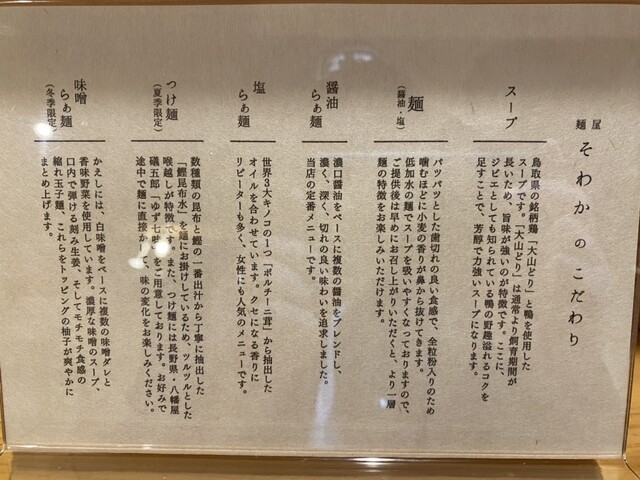 麺屋 そわか のこだわり
スープ
鳥取県の銘柄鶏「大山どり」と鴨を使用した
スープです。「大山どり」は通常より飼育期間が
長いため、旨味が強いのが特徴です。ここに、
ジビエとしても知られている鴨の野趣溢れるコクを
足すことで、芳醇で力強いスープになります。
麺
(醤油・塩)
パツパツとした歯切れの良い食感で、全粒粉入りのため
噛むほどに小麦の香りが鼻から抜けてきます。
低加水の麺でスープを吸いやすくなっておりますので、
ご提供後は早めにお召し上がりいただくと、より一層
麺の特徴をお楽しみいただけます。
醤油
らぁ麺
濃口醤油をベースに複数の醤油をブレンドし、
濃く、深く、切れの良い味わいを追求しました。
当店の定番メニューです。
塩
らぁ麺
世界3大キノコの1つ「ポルチーニ茸」から抽出した
オイルを合わせています。クセになる香りに
リピーターも多く、女性にも人気のメニューです。
つけ麺
(夏季限定)
数種類の昆布と鰹の一番出汁から丁寧に抽出した
「鰹昆布水」を麺にお掛けしているため、ツルツルとした
喉越しが特徴です。また、つけ麺には長野県・八幡屋
礒五郎「ゆず七味」をご用意しております。お好みで
途中で麺に直接かけて、味の変化をお楽しみください。
味噌
らぁ麺
(冬季限定)
かえしには、白味噌をベースに複数の味噌ダレと
香味野菜を使用しています。濃厚な味噌のスープ、
口内で弾ける刻み生姜、そしてモチモチ食感の
縮れ玉子麺、これらをトッピングの柚子が爽やかに
まとめ上げます。